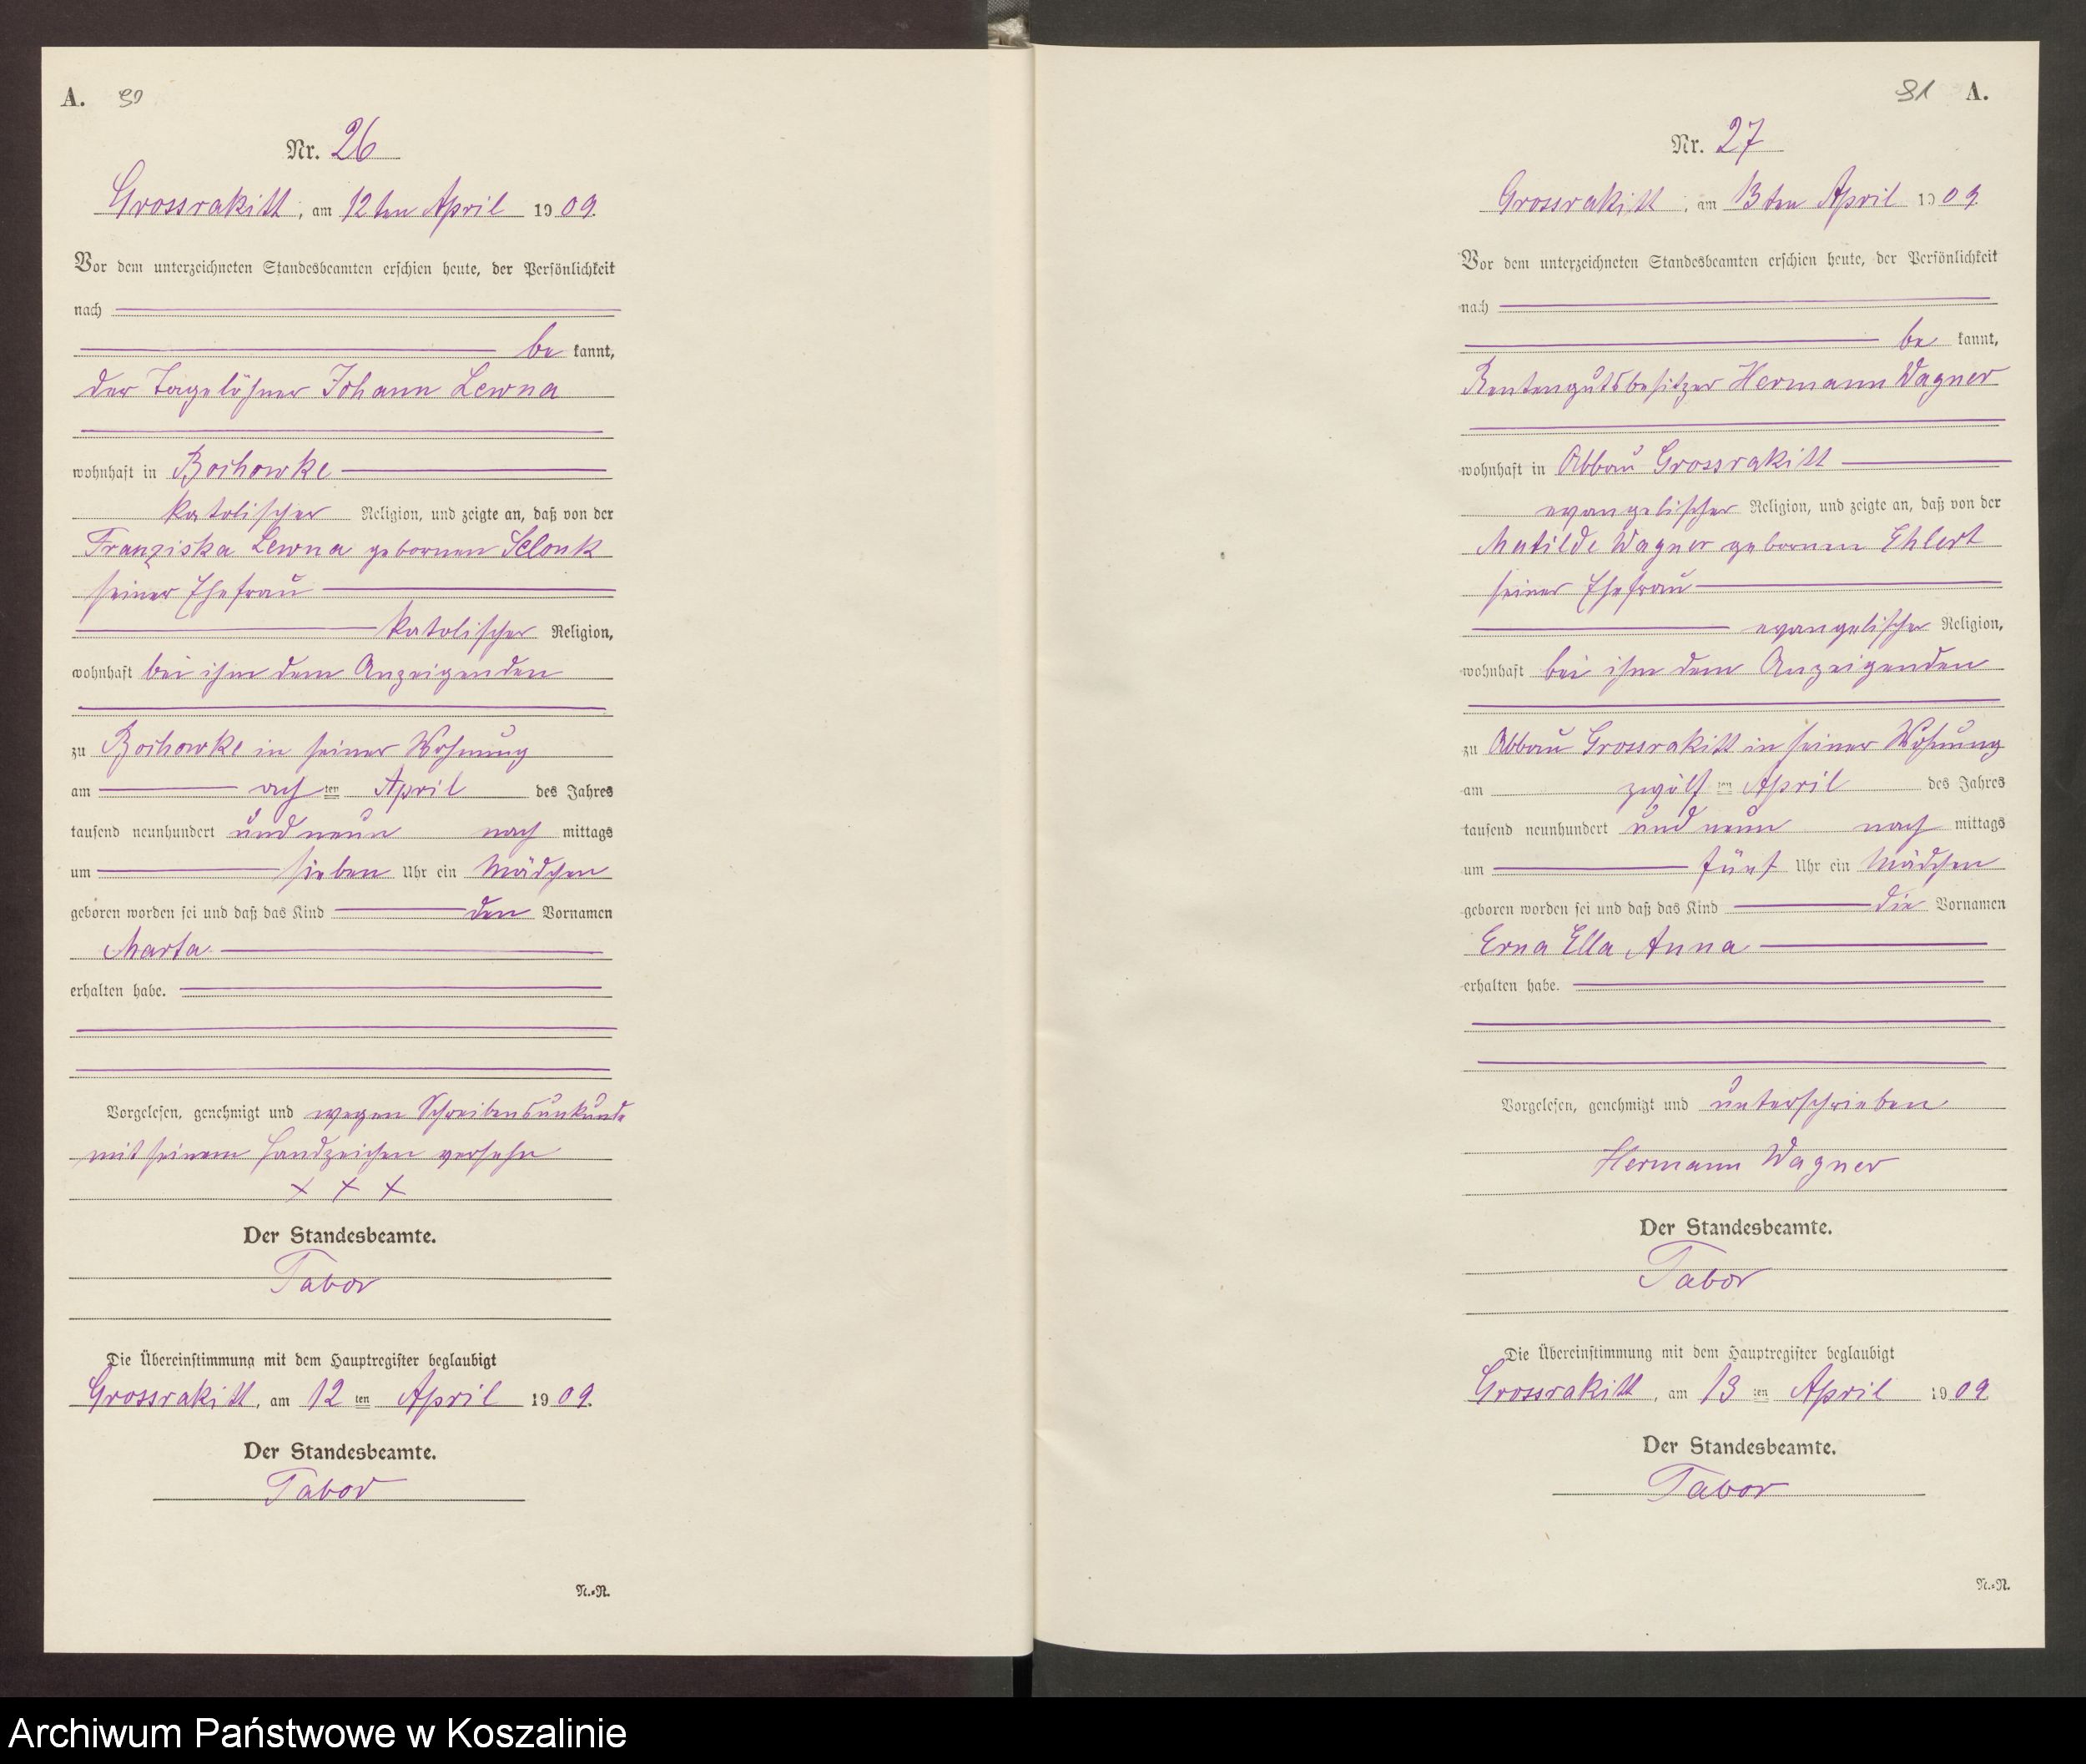 A. 90
Nr. 26
Grossrakitt, am 12ten April 1909.
Vor dem unterzeichneten Standesbeamten erschien heute, der Persönlichkeit
nach
be kannt,
der Tagelöhner Johann Lewna
wohnhaft in Bochowke
katolischer Religion, und zeigte an, daß von der
Franziska Lewna gebornen Selonk
seiner Ehefrau
katolischer Religion,
wohnhaft bei ihm dem Anzeigenden
zu Bochowke in seiner Wohnung
am ach ten April des Jahres
tausend neunhundert und neun nach mittags
um sieben Uhr ein Mädchen
geboren worden sei und daß das Kind den Vornamen
Marta
erhalten habe.
Vorgelesen, genehmigt und wegen Schreibensunkunde
mit seinem Handzeichen versehn
+ + +
Der Standesbeamte.
Tabor
Die Übereinstimmung mit dem Hauptregister beglaubigt
Grossrakitt, am 12 ten April 1909.
Der Standesbeamte.
Tabor
N.=N.
91 A.
Nr. 27
Grossrakitt, am 13ten April 1909.
Vor dem unterzeichneten Standesbeamten erschien heute, der Persönlichkeit
nach
be kannt,
Rentengutsbesitzer Hermann Wagner
wohnhaft in Abbau Grossrakitt
evangelischer Religion, und zeigte an, daß von der
Matilde Wagner gebornen Ehlert
seiner Ehefrau
evangelischer Religion,
wohnhaft bei ihm dem Anzeigenden
zu Abbau Grossrakitt in seiner Wohnung
am zwölf ten April des Jahres
tausend neunhundert und neun nach mittags
um fünf Uhr ein Mädchen
geboren worden sei und daß das Kind die Vornamen
Erna Ella Anna
erhalten habe.
Vorgelesen, genehmigt und unterschrieben
Hermann Wagner
Der Standesbeamte.
Tabor
Die Übereinstimmung mit dem Hauptregister beglaubigt
Grossrakitt, am 13 ten April 1909
Der Standesbeamte.
Tabor
N.=N.
Archiwum Państwowe w Koszalinie